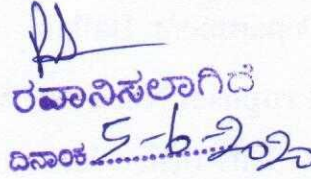 ರವಾನಿಸಲಾಗಿದೆ
ದಿನಾಂಕ 5-6-2020